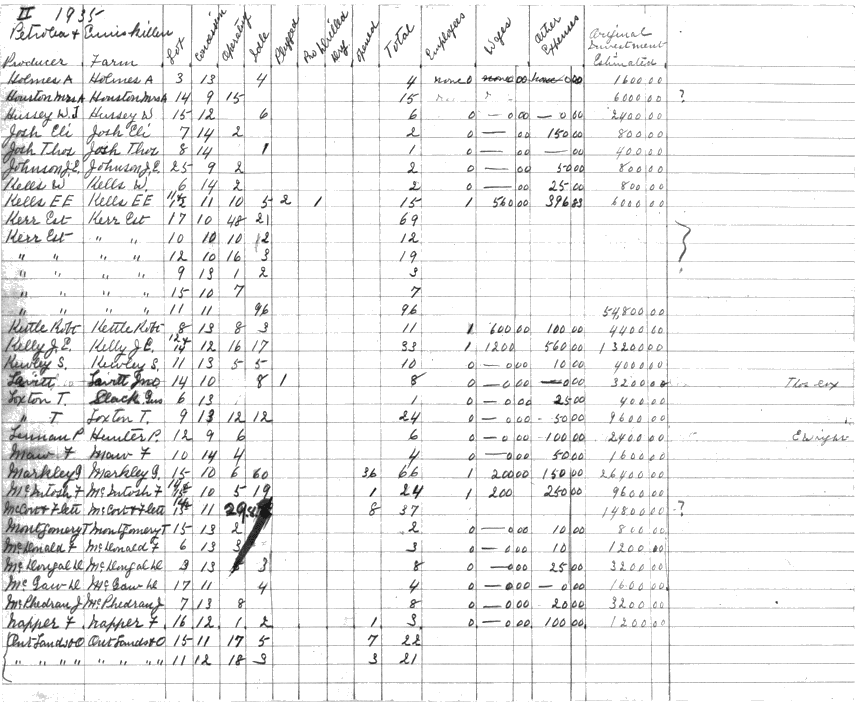 II 1935
Petrolea & Enniskillen
Producer Farm Lot Concession Operatg Idle Plugged No Drilled Dry opened Total Employees Wages Other Expenses Original Investment Estimated
Holmes A Holmes A 3 13 4 4 none 0 none 00 none 0 00 1600 00
Houston Mrs A Houston Mrs A 14 9 15 15 6000 00 ?
Hussey W.J Hussey W 15 12 6 6 0 — 0 00 — 0 00 2400 00
Josh Eli Josh Eli 7 14 2 2 0 — 00 150 00 800 00
Josh Thos Josh Thos 8 14 1 1 0 — 00 — 00 400 00
Johnson J.E. Johnson J.E. 25 9 2 2 0 — 00 50 00 800 00
Kells W Kells W. 6 14 2 2 0 — 00 25 00 800 00
Kells EE Kells EE 11 10 5 2 1 15 1 560 00 396 83 6000 00
Kerr Est Kerr Est 17 10 48 21 69
Kerr Est " " 10 10 10 12 12
" " " " 12 10 16 3 19
" " " " 9 13 1 2 3
" " " " 15 10 7 7
" " " " 11 11 96 96 54,800 00
Kettle Robt Kettle Robt 8 13 8 3 11 1 600 00 100 00 4400 00
Kelly J.E. Kelly J.E. 12 16 17 33 1 1200 560 00 13200 00
Kewley S. Kewley S. 11 13 5 5 10 0 — 0 00 10 00 4000 00
Lavitt Lavitt Jno 14 10 8 1 8 0 — 00 — 0 00 3200 00 Thos Cox
Loxton T. Slack 6 13 1 0 — 0 00 25 00 400 00
" T. Loxton T. 9 13 12 12 24 0 — 00 50 00 9600 00
Lennan P Hunter P. 12 9 6 6 0 — 00 100 00 2400 00 E Wright
Maw F Maw F 10 14 4 4 0 — 00 50 00 1600 00
Markley G Markley G 15 10 6 60 36 66 1 200 00 150 00 26400 00
McIntosh F McIntosh F 10 5 19 1 24 1 200 250 00 9600 00
McCort & Flett McCort & Flett 11 29 8 37 14800 00 ?
Montgomery T Montgomery T 15 13 2 2 0 — 0 00 10 00 800 00
McDonald F McDonald F 6 13 3 3 0 — 00 10 1200 00
McDougal W McDougal W 3 13 3 8 0 — 00 25 00 3200 00
McGaw W McGaw W 17 11 4 4 0 — 0 00 — 0 00 1600 00
McPhedran J McPhedran J 7 13 8 8 0 — 0 00 20 00 3200 00
Napper F Napper F 16 12 1 2 1 3 0 — 00 100 00 1200 00
Out Lands O Out Lands O 15 11 17 5 7 22
" " " " " " 11 12 18 3 3 21